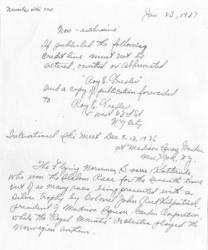 Jan 23, 1937
Non-exclusive
If published the following
credit line must not be
altered, omitted or abbreviated
"Roy E. Drexler"
and a copy of publication forwarded
to
Roy E. Drexler
W west 23rd St
NY City
International Ski Meet Dec. 9-12, 1936
at Madison Square Garden
New York, N.Y.
The Flying Norseman
who won the Slalom Race for the time
out of as many races, being presented with a
Silver Trophy by Colonel John Reed Kilpatrick,
president of Madison Square Garden Corporation,
while the Royal Orchestra played the
Norwegian Anthem.